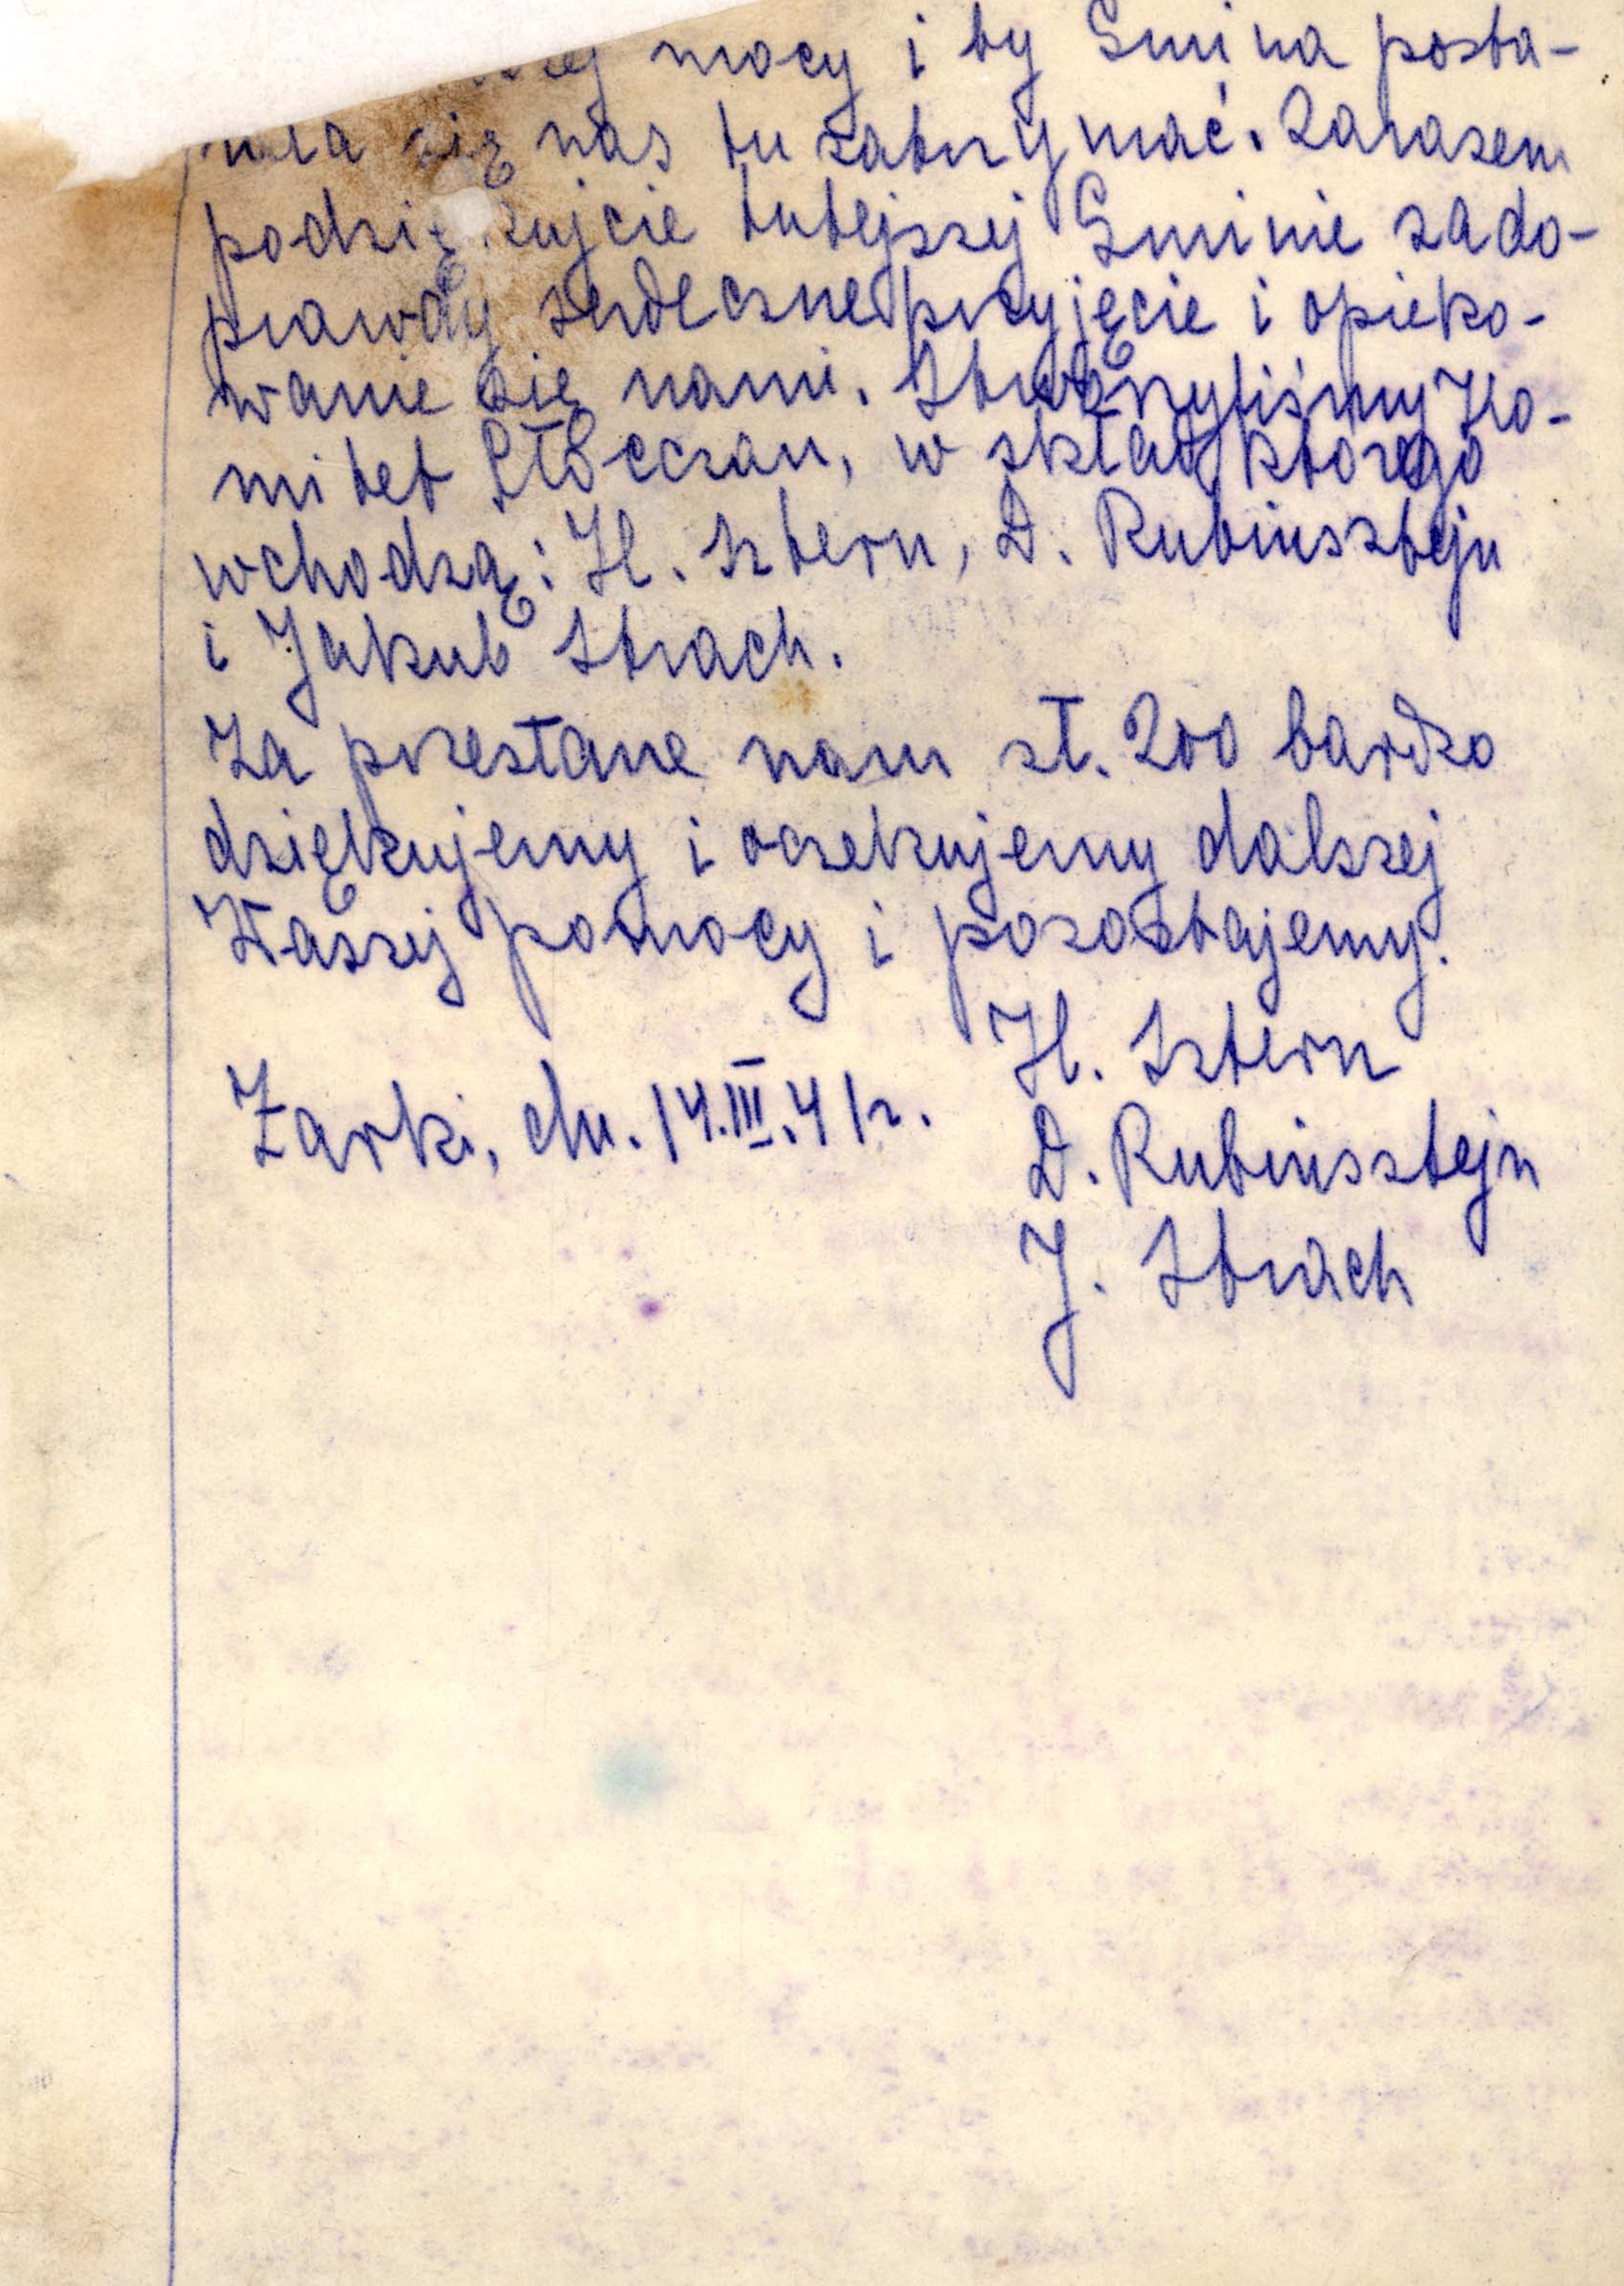 mocy i by Gmina posta-
się nas tu zatrzymać. Zarazem
podziękujcie tutejszej Gminie za do-
prawdy serdeczne przyjęcie i opieko-
wanie się nami. Stworzyliśmy Ko-
mitet Płocczan, w skład którego
wchodzą: H. Sztern, D. Rubinsztejn
i Jakub Strach.
Za przesłane nam zł. 200 bardzo
dziękujemy i oczekujemy dalszej
Waszej pomocy i pozostajemy.
H. Sztern
Żarki, dn. 14.III.41r.
D. Rubinsztejn
J. Strach